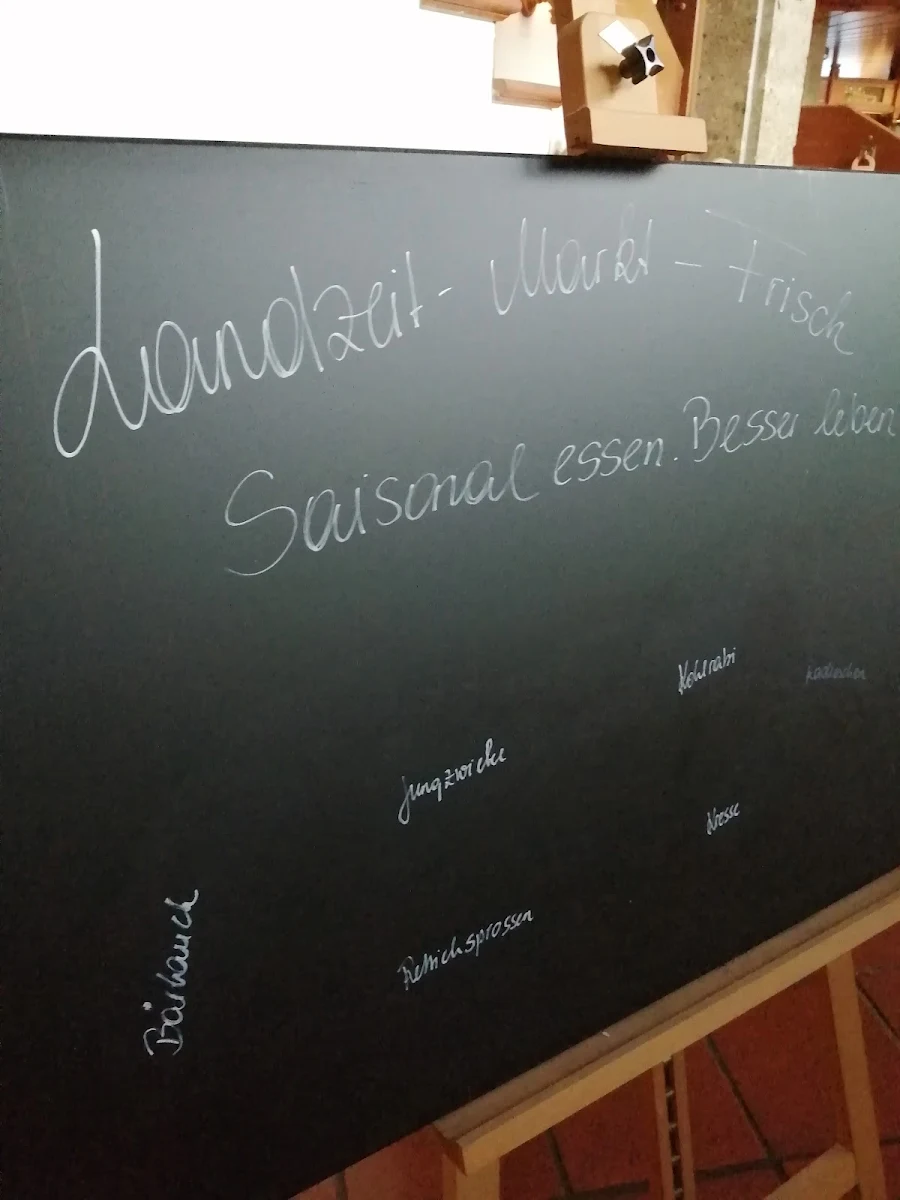 Landzeit - Markt - Frisch
Saisonal essen. Besser leben
Kohlrabi
Radieschen
Kresse
Rettichsprossen
Bärlauch